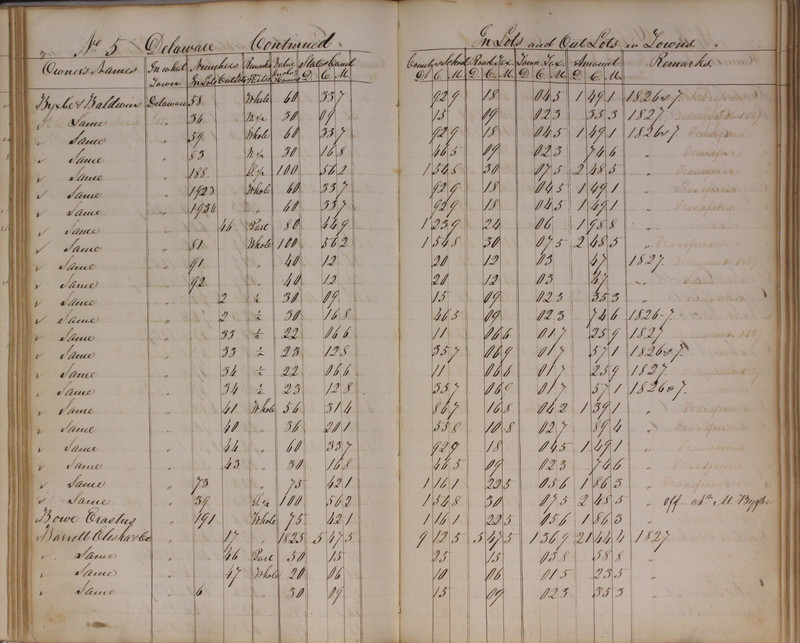 No 5 Delaware Continued In Lots and Out Lots in Towns.
Owners Names In what Town Numbers In Lots Out Lots Value D C M D C M D C M D C M Amount D C M Remarks
Delaware 58 Whole 60 337 929 18 045 1 491 1826 & 7
Same " 36 30 09 15 09 023 353 1827
Same " 59 Whole 60 337 929 18 045 1 491 1826 & 7
Same " 83 30 168 465 09 023 746 "
Same " 188 100 562 1 548 30 075 2 485 "
Same " 1923 Whole 60 337 929 18 045 1 491 "
Same " 1930 " 60 337 929 18 045 1 491 "
Same " 46 Part 80 449 1 239 24 06 1 988 "
Same " 81 Whole 100 562 1 548 30 075 2 485 "
Same " 91 " 40 12 20 12 03 47 1827
Same " 92 " 40 12 20 12 03 47 "
Same " 2 ½ 30 09 15 09 023 353 "
Same " 2 ½ 30 168 465 09 023 746 1826-7
Same " 33 ½ 22 066 11 066 017 259 1827
Same " 33 ½ 23 128 357 069 017 571 1826 & 7
Same " 34 ½ 22 066 11 066 017 259 1827
Same " 34 ½ 23 128 357 069 017 571 1826 & 7
Same " 41 Whole 56 314 867 168 042 1 391 "
Same " 40 " 36 201 558 108 027 894 "
Same " 44 " 60 337 929 18 045 1 491 "
Same " 43 " 30 168 465 09 023 746 "
Same " 73 " 75 421 1 161 225 056 1 863 "
Same " 39 100 562 1 548 30 075 2 485 " off
Bowe Erastus " 191 Whole 75 421 1 161 225 056 1 863 "
Elisha & Co " 17 " 1825 5 475 9 125 5 475 1 369 21 444 1827
Same " 46 Part 50 15 25 15 038 588 "
Same " 47 Whole 20 06 10 06 015 235 "
Same " 6 " 30 09 15 09 023 353 "